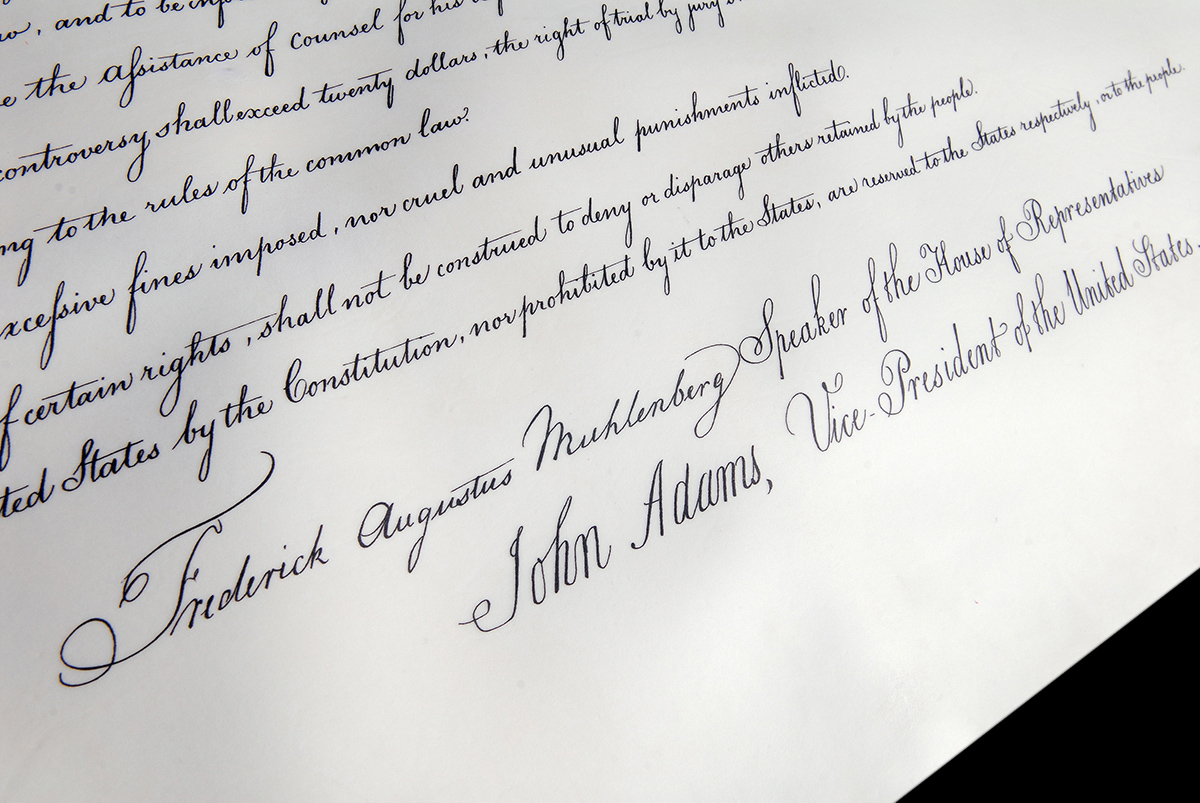 , and to be
the assistance of counsel for his
controversy shall exceed twenty dollars, the right of trial by jury
ng to the rules of the common law.
xcessive fines imposed, nor cruel and unusual punishments inflicted.
f certain rights, shall not be construed to deny or disparage others retained by the people.
ted States by the Constitution, nor prohibited by it to the States, are reserved to the States respectively, or to the people.
Frederick Augustus Muhlenberg Speaker of the House of Representatives
John Adams, Vice-President of the United States.